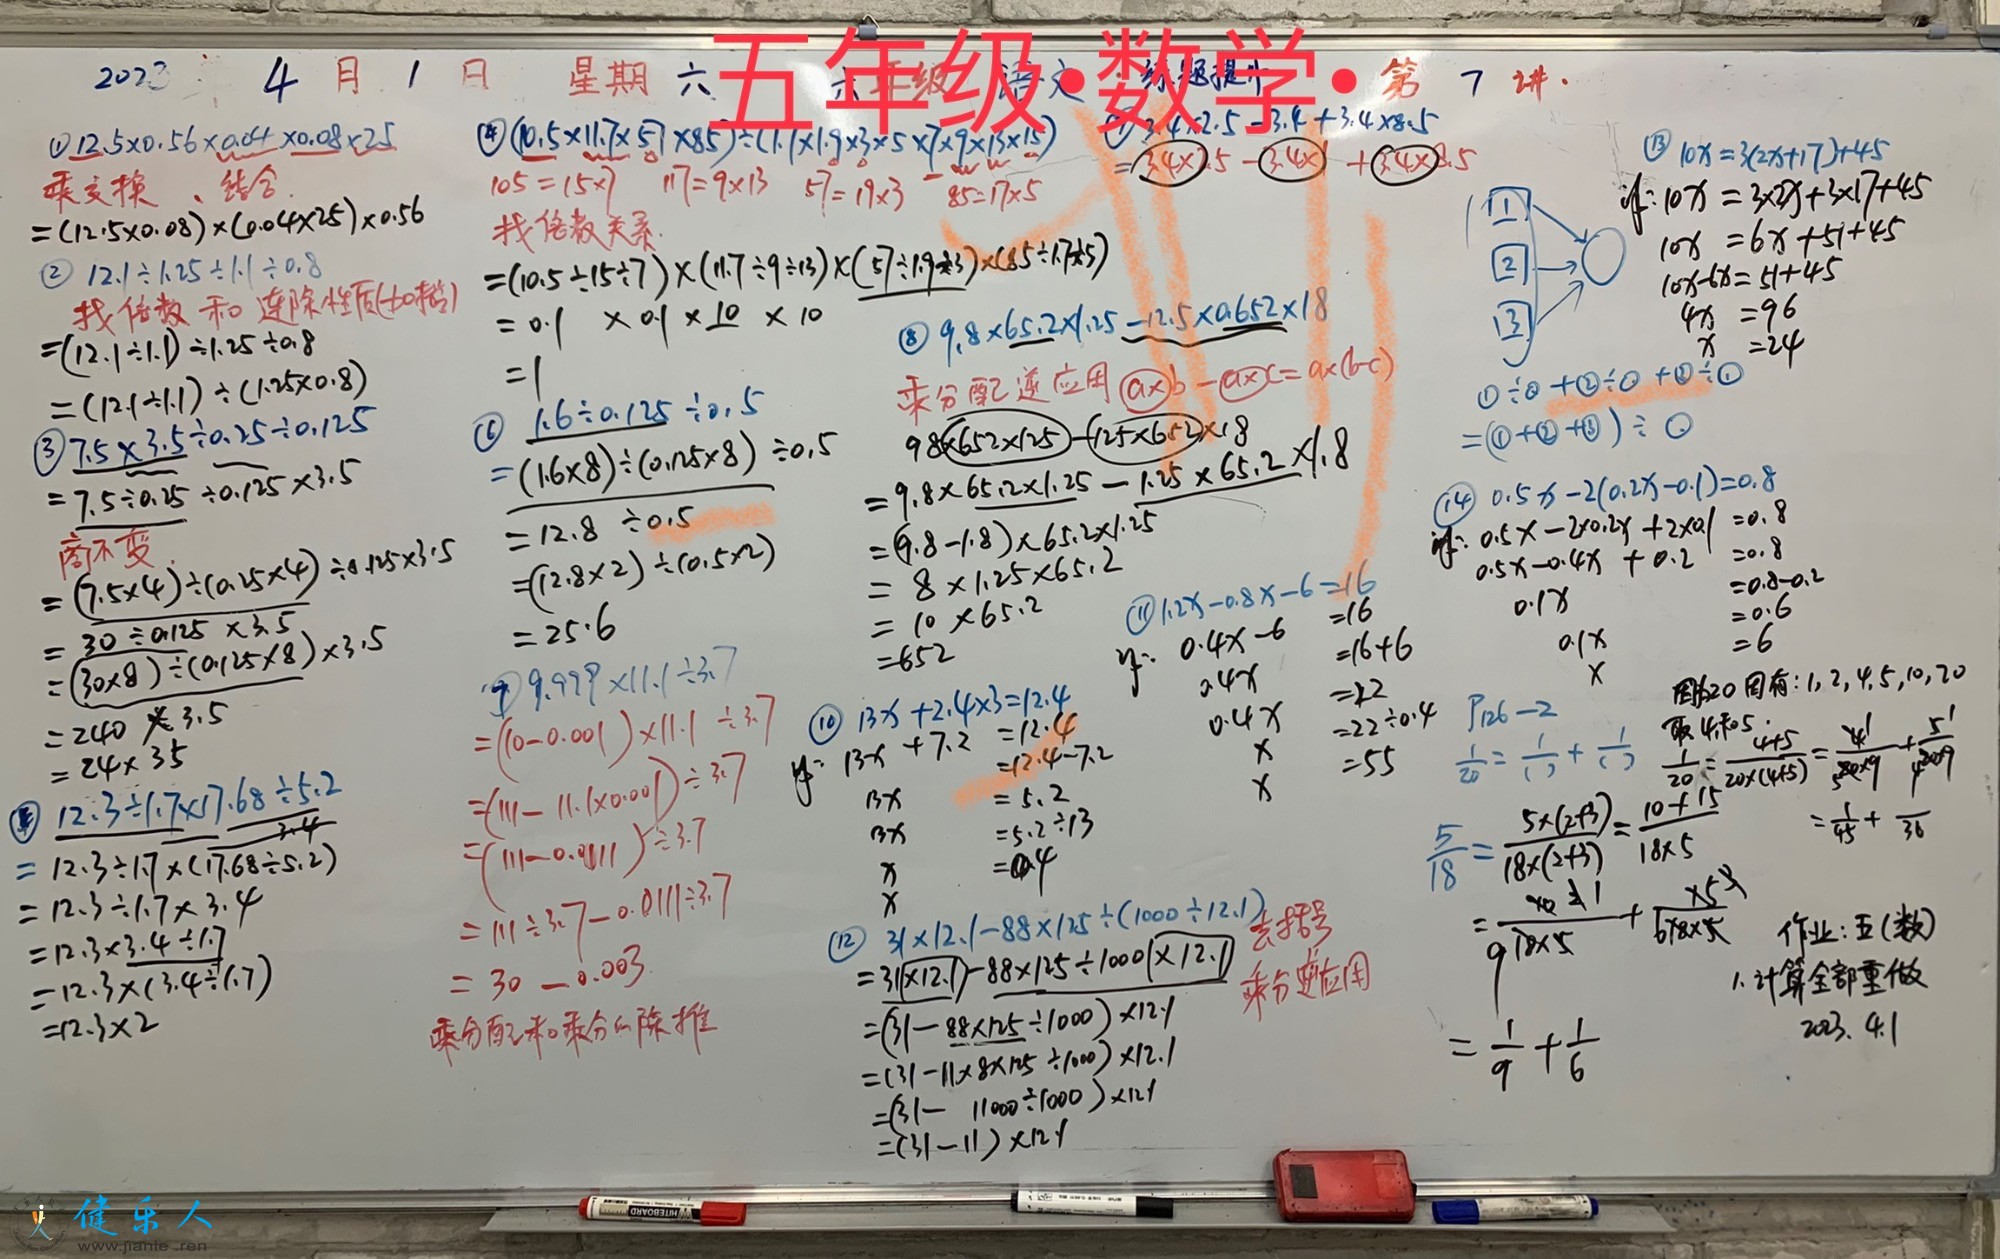 五年级·数学·
2023 4月1日 星期六 第7讲.
①12.5×0.56×0.04×0.08×25
乘交换、结合
=(12.5×0.08)×(0.04×25)×0.56
② 12.1÷1.25÷1.1÷0.8
找倍数和连除性质
=(12.1÷1.1)÷1.25÷0.8
=(12.1÷1.1)÷(1.25×0.8)
③ 7.5×3.5÷0.25÷0.125
=7.5÷0.25÷0.125×3.5
商不变.
=(7.5×4)÷(0.25×4)÷0.125×3.5
=30÷0.125×3.5
=(30×8)÷(0.125×8)×3.5
=240×3.5
=24×35
12.3÷1.7×17.68÷5.2
3.4
=12.3÷1.7×(17.68÷5.2)
=12.3÷1.7×3.4
=12.3×3.4÷1.7
=12.3×(3.4÷1.7)
=12.3×2
④(10.5×11.7×57×85)÷(1.7×1.9×3×5×7×9×13×15)
105=15×7 117=9×13 57=19×3 85=17×5
找倍数关系.
=(10.5÷15÷7)×(11.7÷9÷13)×(57÷1.9÷3)×(85÷1.7÷5)
=0.1×0.1×10×10
=1
⑥ 1.6÷0.125÷0.5
=(1.6×8)÷(0.125×8)÷0.5
=12.8÷0.5
=(12.8×2)÷(0.5×2)
=25.6
9.999×11.1÷3.7
=(10-0.001)×11.1÷3.7
=(111-11.1×0.001)÷3.7
=(111-0.0111)÷3.7
=111÷3.7-0.0111÷3.7
=30-0.003
乘分配和乘分的除推
3.4×2.5-3.4+3.4×8.5
=3.4×2.5-3.4×1+3.4×8.5
⑧ 9.8×65.2×1.25-12.5×0.652×18
乘分配逆应用 a×b-a×c=a×(b-c)
98×652×125-125×652×18
=9.8×65.2×1.25-1.25×65.2×1.8
=(9.8-1.8)×65.2×1.25
=8×1.25×65.2
=10×65.2
=652
⑩ 13x+2.4×3=12.4
解:13x+7.2=12.4
13x=12.4-7.2
13x=5.2
x=5.2÷13
x=0.4
⑪1.2x-0.8x-6=16
解:0.4x-6=16
0.4x=16+6
0.4x=22
x=22÷0.4
x=55
⑫ 31×12.1-88×125÷(1000÷12.1)
去括号
=31×12.1-88×125÷1000×12.1
乘分逆应用
=(31-88×125÷1000)×12.1
=(31-11×8×125÷1000)×12.1
=(31-11000÷1000)×12.1
=(31-11)×12.1
⑬ 10x=3(2x+17)+45
解:10x=3×2x+3×17+45
10x=6x+51+45
10x-6x=51+45
4x=96
x=24
1
2
3
=(①+②+③)÷○
⑭ 0.5x-2(0.2x-0.1)=0.8
解:0.5x-2×0.2x+2×0.1=0.8
0.5x-0.4x+0.2=0.8
0.1x=0.8-0.2
0.1x=0.6
x=6
P126-2
1/20=1/( )+1/( )
因为20因有:1,2,4,5,10,20
取4和5.
1/20=(4+5)/(20×(4+5))=4/(20×9)+5/(20×9)
=1/45+1/36
5/18=5×(2+3)/(18×(2+3))=(10+15)/(18×5)
=1/9+1/6
作业:五(数)
1.计算全部重做
2023.4.1
健乐人
www.jianle.ren